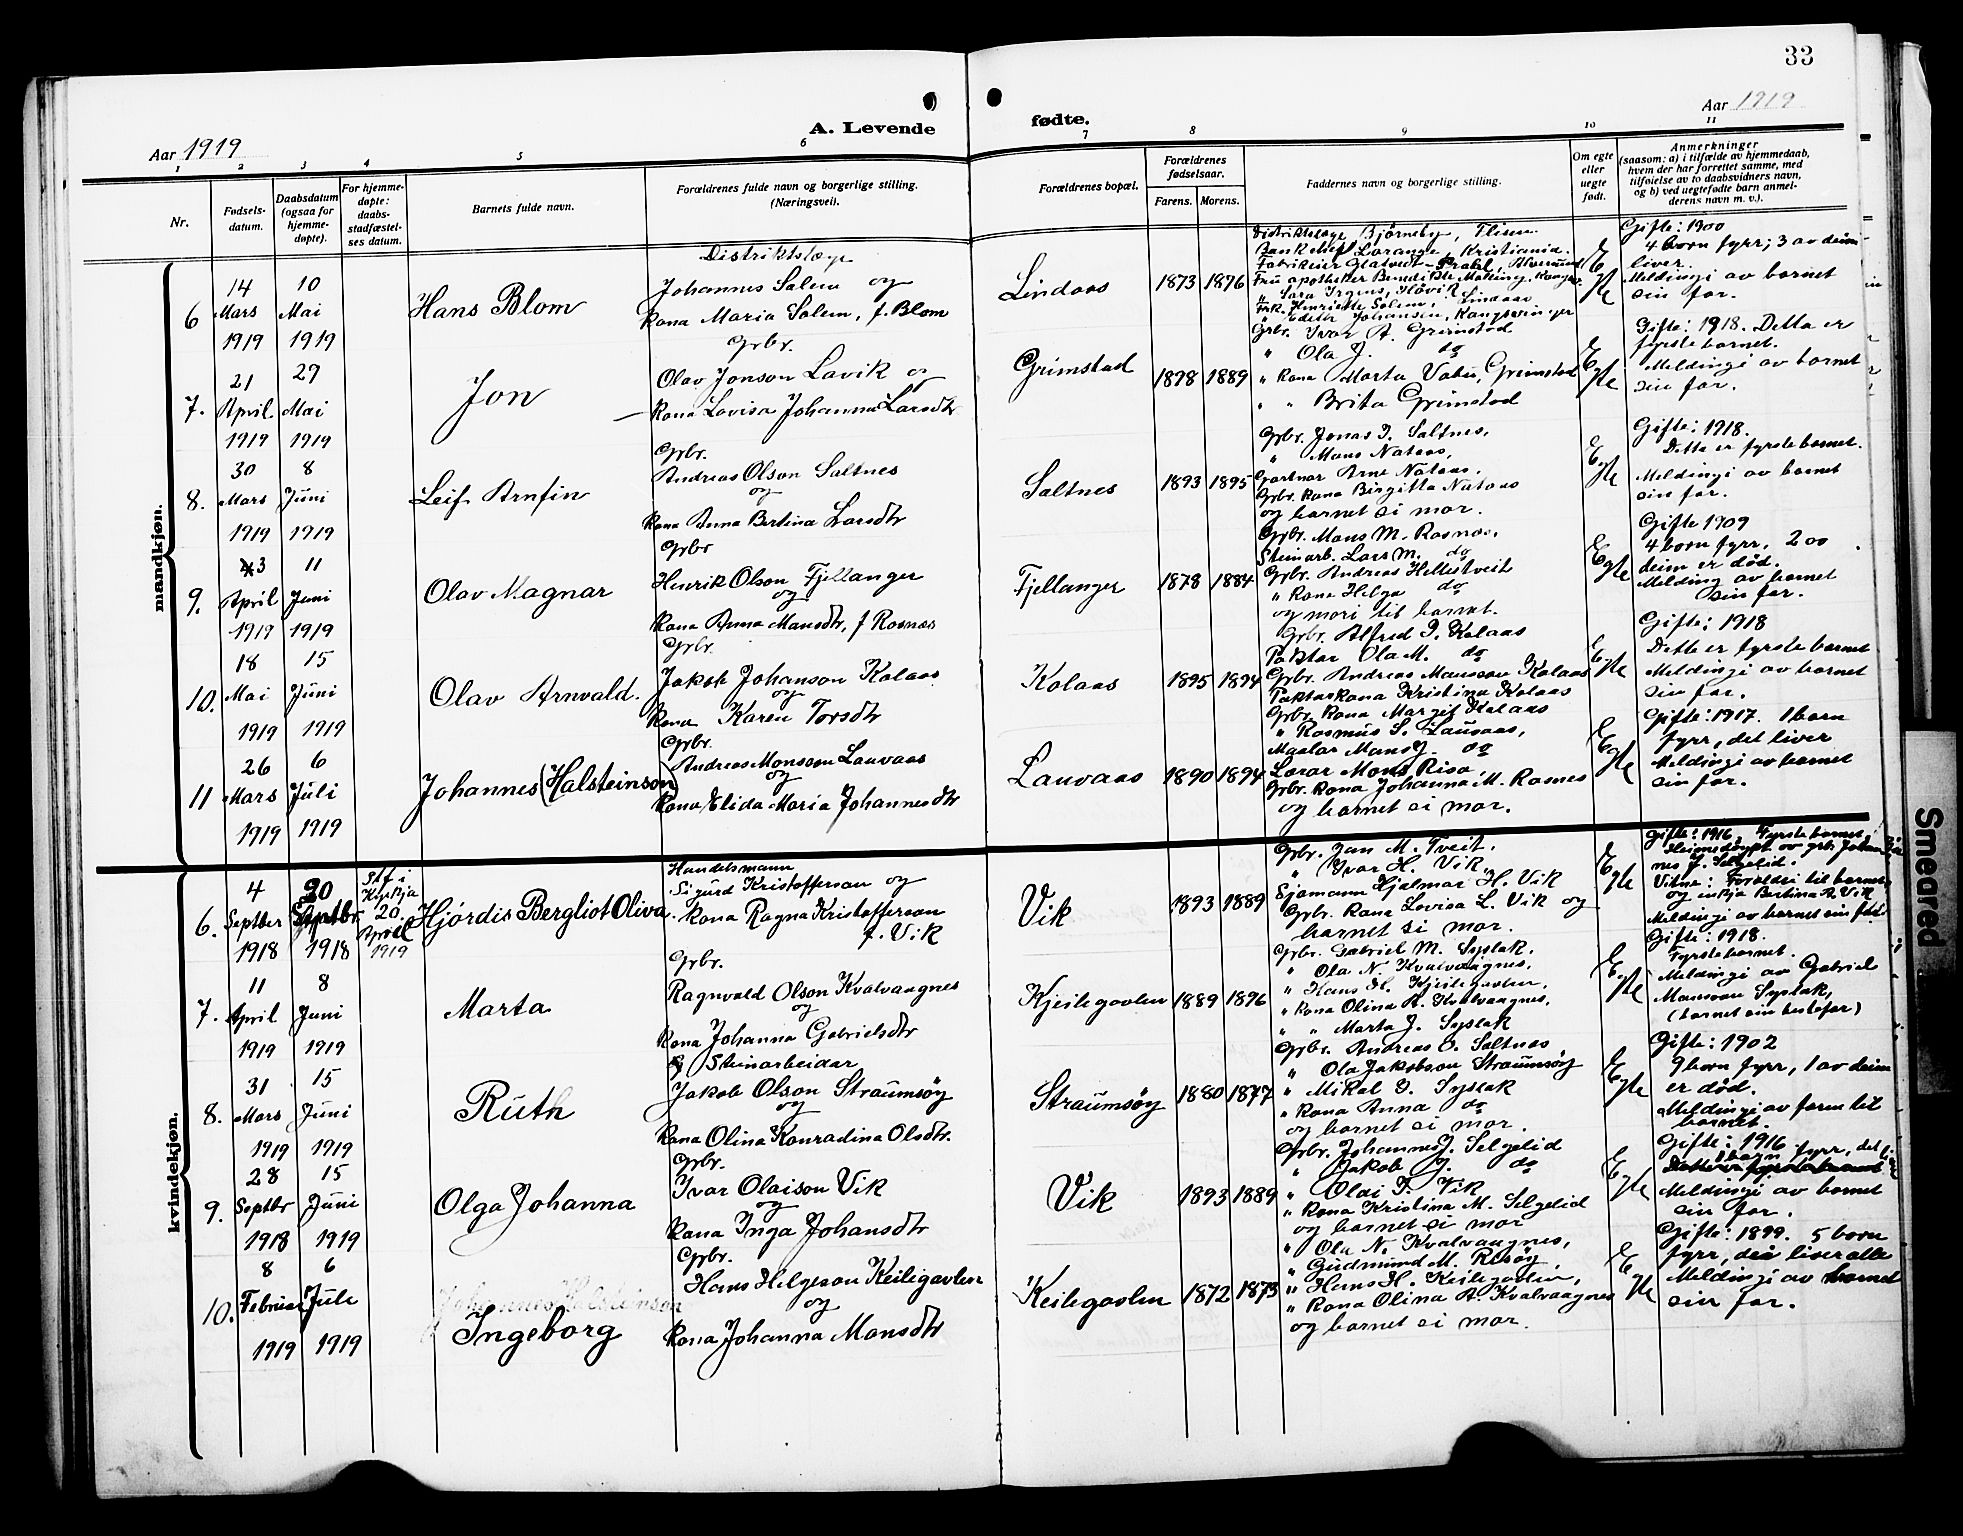 33
Aar 1919
A. Levende
fødte.
Aar 1919
1 2 3 4 5 6 7 8 9 10 11
Nr.
Fødsels-
datum.
Daabsdatum
(ogsaa for
hjemme-
døpte).
For hjemme-
døpte:
daabs-
stadfæstel-
ses datum.
Barnets fulde navn.
Forældrenes fulde navn og borgerlige stilling.
(Næringsvei).
Forældrenes bopæl.
Forældrenes
fødselsaar.
Farens. Morens.
Faddernes navn og borgerlige stilling.
Om egte
eller
uegte
født.
Anmerkninger
(saasom: a) i tilfælde av hjemmedaab,
hvem der har forrettet samme, med
tilføielse av to daabsvidners navn,
og b) ved uegtefødte barn anmel-
derens navn m. v.).
mandkjøn.
6
14
Mars
1919
10
Mai
1919
Hans Blom
Distriktslæge
Johannes Salem og
Kona Maria Salem, f. Blom
Lindaas
1873 1876
Distriktslæge Bjørneby, Flisen
Bankchef Lorange, Kristiania.
Fru apotheker Benedikte Melling, Kongsv.
Frk. Henriette Salem, Lindaas
" Edith Johansen, Kongsvinger
Egte
Gifte: 1900
4 born fyrr; 3 av deim
liver.
Meldingi av barnet
sin far.
7.
21
April
1919
27
Mai
1919
Jon
Grbr.
Olav Jonson Lavik og
Kona Lovisa Johanna Larsdtr
Grimstad
1878 1889
Grbr. Ivar A. Grimstad
" Ola J. do
" Kona Marta Vabø, Grimstad
" " Brita Grimstad
Egte
Gifte: 1918. Detta er
fyrste barnet.
Meldingi av barnet
sin far.
8.
30
Mars
1919
8
Juni
1919
Leif Arnfin
Grbr.
Andreas Olson Saltnes
og
Kona Anna Bertina Larsdtr
Saltnes
1893 1895
Grbr. Jonas I. Saltnes,
" Mons Nataas,
Gartnar Arne Nataas.
Grbr. Kona Birgitta Nataas
og barnet si mor.
Egte
Gifte: 1918.
Detta er fyrste barnet.
Meldingi av barnet
sin far.
9.
3
April
1919
11
Juni
1919
Olav Magnar
Grbr
Henrik Olson Fjellanger
og
Kona Anna Mansdtr, f Rosnes
Fjellanger
1878 1884
Grbr. Mons M. Rosnes.
Steinarb. Lars M. do
Grbr. Andreas Hellestveit
" Kona Helga do
og mori til barnet.
Egte
Gifte 1909
4 born fyrr, 2 av
deim er død.
Melding av barnet
sin far.
10.
18
Mai
1919
15
Juni
1919
Olav Arnvald.
Grbr.
Jakob Johanson Kolaas
og
Kona Karen Torsdtr
Kolaas
1895 1894
Grbr. Alfred I. Kolaas
Paktar Ola M. do
Grbr. Andreas Mansson Kolaas
Paktarkona Kristina Kolaas
Grbr. Kona Margit Kolaas
Egte
Gifte: 1918
Detta er fyrste barnet
Meldingi av barnet
sin far.
11
26
Mars
1919
6
Juli
1919
Johannes (Halsteinson)
Grbr.
Andreas Monsson Lauvaas
og
Kona Elida Maria Johannesdtr
Lauvaas
1890 1894
" Rasmus S. Lauvaas,
Maalar Mons J. do
Lærar Mons Risa,
Grbr. Kona Johanna M. Rosnes
og barnet si mor.
Egte
Gifte: 1917. 1 born
fyrr, det liver
Meldingi av barnet
sin far.
kvindekjøn.
6.
4
Septber
1918
20
Septbr
1918
Stf i
Kyrkja
20.
April
1919
Hjórdis Bergliot Oliva.
Handelsmann
Sigurd Kristofferson og
Kona Ragna Kristofferson
f. Vik
Vik
1893 1889
Grbr. Jan M. Tveit.
" Ivar H. Vik,
Sjømann Hjalmar H. Vik
Grbr. Kona Lovisa L. Vik og
barnet si mor.
Egte
Gifte: 1916. Fyrste barnet.
Heimedøypt av grb. Johan-
nes J. Selgelid.
Vitne: Foreldri til barnet
og enkja Bertina A. Vik
Meldingi av barnet sin far.
7.
11
April
1919
8
Juni
1919
Marta
Grbr.
Ragnvald Olson Kvalvaagnes
og
Kona Johanna Gabrielsdtr
Kjeilegavlen
1889 1896
Grbr. Gabriel M. Syslak.
" Ola N. Kvalvaagnes,
" Hans H. Kjeilegavlen,
" Kona Olina A. Kvalvaagnes,
" " Marta J. Syslak
Egte
Gifte: 1918.
Fyrste barnet.
Meldingi av Gabriel
Mansson Syslak,
(barnet sin bestefar)
8.
31
Mars
1919
15
Juni
1919
Ruth
Steinarbeidar
Jakob Olson Straumsøy
og
Kona Olina Konradina Olsdtr.
Straumsøy
1880 1877
Grbr. Andreas O. Saltnes
" Ola Jakobson Straumsøy
" Mikal I. Syslak
" Kona Anna do
og barnet si mor.
Egte
Gifte: 1902
9 born fyrr, 1 av deim
er død.
Meldingi av faren til
barnet.
9.
28
Septbr
1918
15
Juni
1919
Olga Johanna
Grbr.
Ivar Olaison Vik
og
Kona Inga Johansdtr
Vik
1893 1889
Grbr. Johannes J. Selgelid
" Jakob J. do
" Olai I. Vik
" Kona Kristina M. Selgelid
og barnet si mor
Egte
Gifte: 1916.
1 barn fyrr, det
Detta er fyrste barnet
Meldingi av barnet
sin far.
10.
8
Februar
1919
6
Juli
1919
Johannes Halsteinson
Ingeborg
Grbr.
Hans Helgeson Keilegavlen
og
Kona Johanna Monsdtr
Keilegavlen
1872 1873
" Ola N. Kvalvaagnes,
" Gudmund M. Risøy,
" Hans H. Keilegavlen,
" Kona Olina A. Kvalvaagnes
og barnet si mor.
Egte
Gifte: 1899. 5 born
fyrr, dei liver alle
Meldingi av barnet
sin far.
Smeared